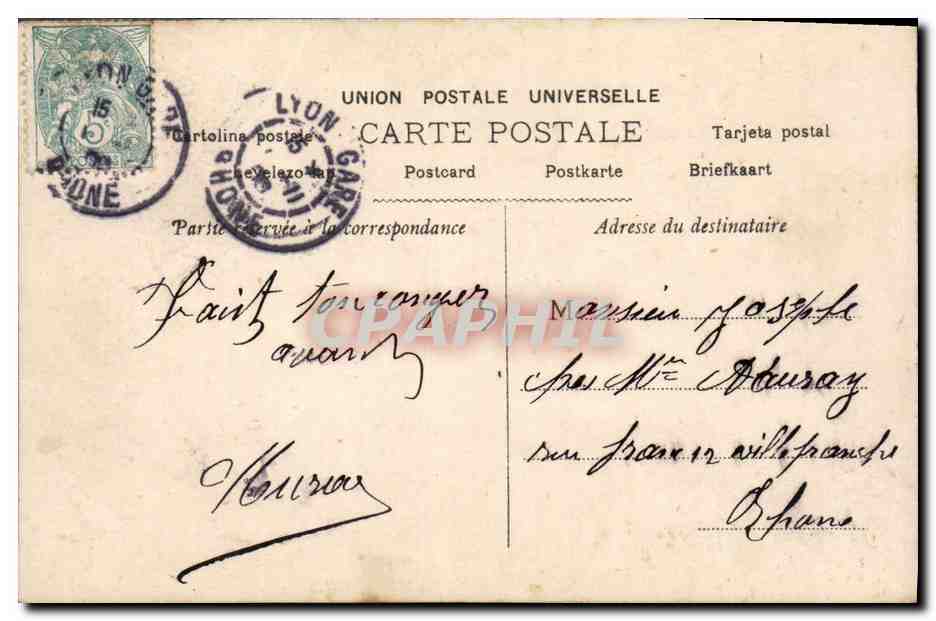 UNION POSTALE UNIVERSELLE
CARTE POSTALE
Cartolina postale
Tarjeta postal
Levelezo-Lap
Postcard
Postkarte
Briefkaart
LYON GARE
RHONE
15
5
LYON GARE
RHONE
Partie réservée à la correspondance
Adresse du destinataire
Fait ton
avant
Monsieur Joseph
chez Mme
rue 12 villefranche
Rhone
CPAPHIL